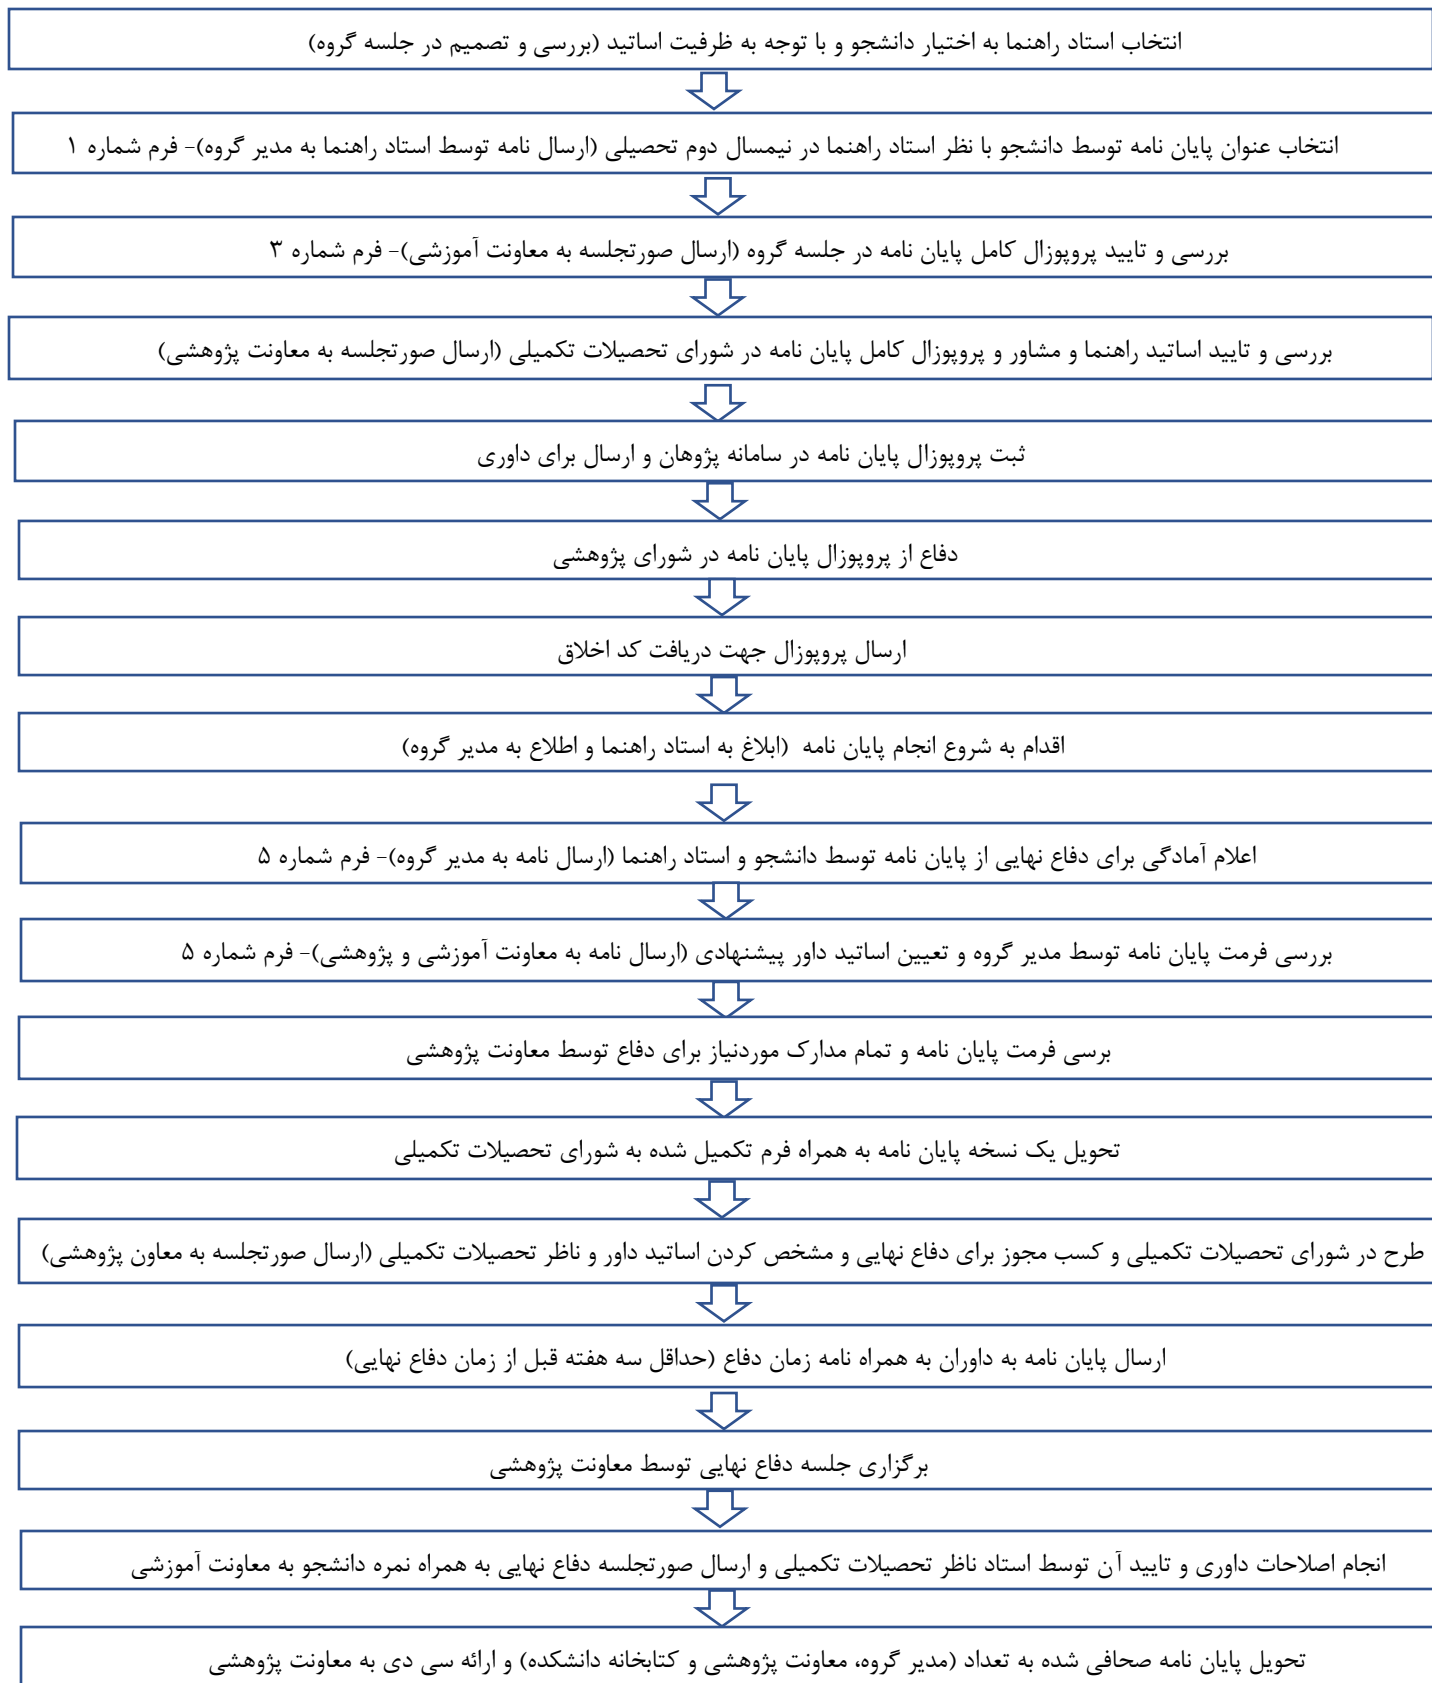 انتخاب استاد راهنما به اختیار دانشجو و با توجه به ظرفیت اساتید (بررسی و تصمیم در جلسه گروه)
انتخاب عنوان پایان نامه توسط دانشجو با نظر استاد راهنما در نیمسال دوم تحصیلی (ارسال نامه توسط استاد راهنما به مدیر گروه)- فرم شماره ۱
بررسی و تایید پروپوزال کامل پایان نامه در جلسه گروه (ارسال صورتجلسه به معاونت آموزشی)- فرم شماره ۳
بررسی و تایید اساتید راهنما و مشاور و پروپوزال کامل پایان نامه در شورای تحصیلات تکمیلی (ارسال صورتجلسه به معاونت پژوهشی)
ثبت پروپوزال پایان نامه در سامانه پژوهان و ارسال برای داوری
دفاع از پروپوزال پایان نامه در شورای پژوهشی
ارسال پروپوزال جهت دریافت کد اخلاق
اقدام به شروع انجام پایان نامه (ابلاغ به استاد راهنما و اطلاع به مدیر گروه)
اعلام آمادگی برای دفاع نهایی از پایان نامه توسط دانشجو و استاد راهنما (ارسال نامه به مدیر گروه)- فرم شماره ۵
بررسی فرمت پایان نامه توسط مدیر گروه و تعیین اساتید داور پیشنهادی (ارسال نامه به معاونت آموزشی و پژوهشی)- فرم شماره ۵
برسی فرمت پایان نامه و تمام مدارک موردنیاز برای دفاع توسط معاونت پژوهشی
تحویل یک نسخه پایان نامه به همراه فرم تکمیل شده به شورای تحصیلات تکمیلی
طرح در شورای تحصیلات تکمیلی و کسب مجوز برای دفاع نهایی و مشخص کردن اساتید داور و ناظر تحصیلات تکمیلی (ارسال صورتجلسه به معاون پژوهشی)
ارسال پایان نامه به داوران به همراه نامه زمان دفاع (حداقل سه هفته قبل از زمان دفاع نهایی)
برگزاری جلسه دفاع نهایی توسط معاونت پژوهشی
انجام اصلاحات داوری و تایید آن توسط استاد ناظر تحصیلات تکمیلی و ارسال صورتجلسه دفاع نهایی به همراه نمره دانشجو به معاونت آموزشی
تحویل پایان نامه صحافی شده به تعداد (مدیر گروه، معاونت پژوهشی و کتابخانه دانشکده) و ارائه سی دی به معاونت پژوهشی